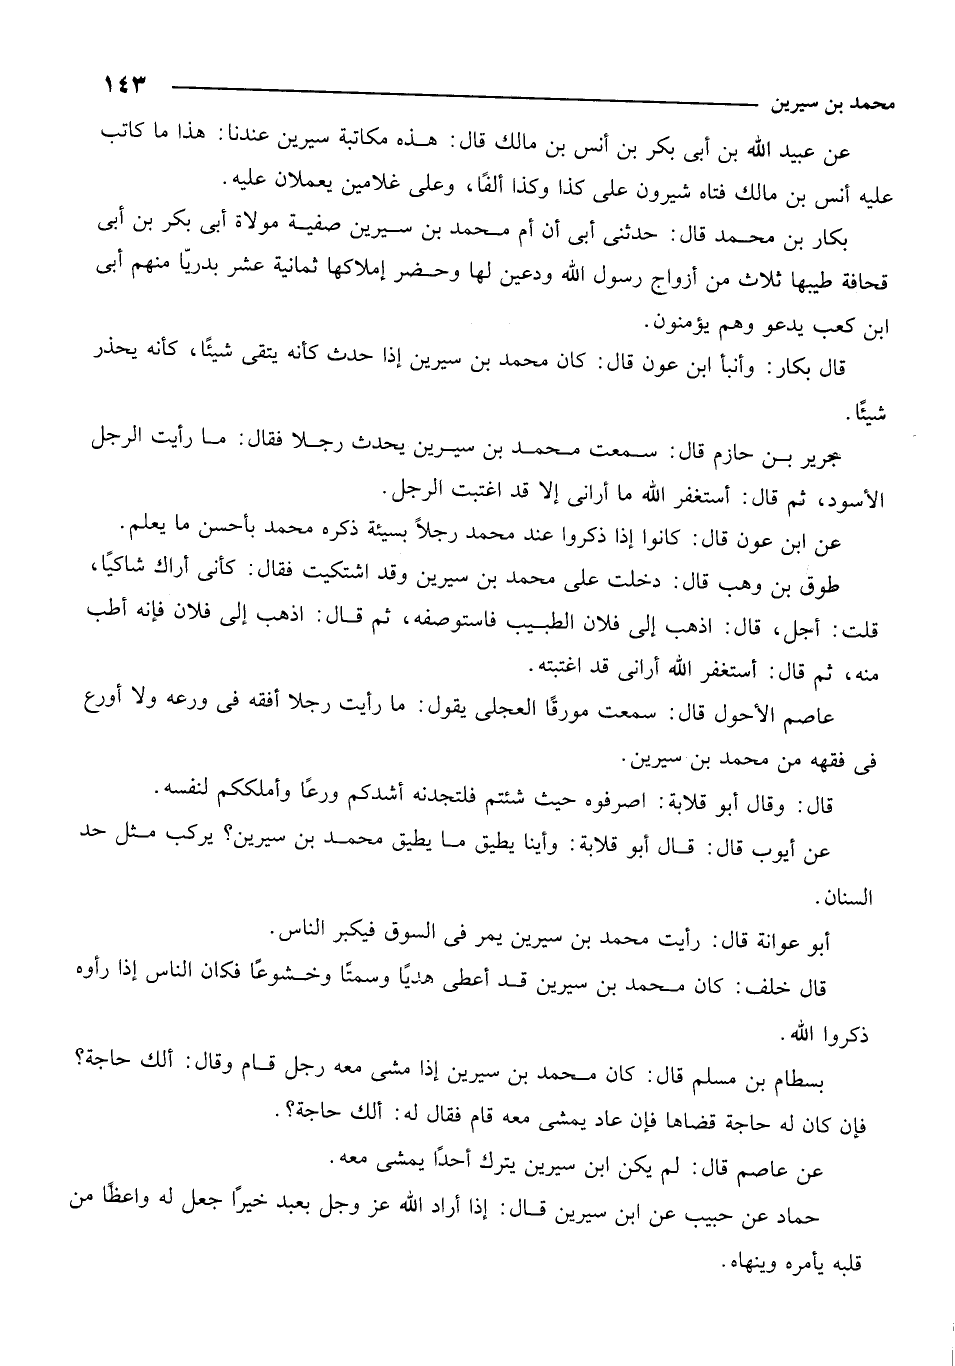 محمد بن سيرين ١٤٣
عن عبيد الله بن أبى بكر بن أنس بن مالك قال: هذه مكاتبة سيرين عندنا: هذا ما كاتب
عليه أنس بن مالك فتاه شيرون على كذا وكذا ألفًا، وعلى غلامين يعملان عليه.
بكار بن محمد قال: حدثنى أبى أن أم محمد بن سيرين صفية مولاة أبى بكر بن أبى
قحافة طيبها ثلاث من أزواج رسول الله ودعين لها وحضر إملاكها ثمانية عشر بدريّا منهم أبى
ابن كعب يدعو وهم يؤمنون.
قال بكار: وأنبأ ابن عون قال: كان محمد بن سيرين إذا حدث كأنه يتقى شيئًا، كأنه يحذر
شيئًا.
جرير بن حازم قال: سمعت محمد بن سيرين يحدث رجلا فقال: ما رأيت الرجل
الأسود، ثم قال: أستغفر الله ما أرانى إلا قد اغتبت الرجل.
عن ابن عون قال: كانوا إذا ذكروا عند محمد رجلاً بسيئة ذكره محمد بأحسن ما يعلم.
طوق بن وهب قال: دخلت على محمد بن سيرين وقد اشتكيت فقال: كأنى أراك شاكيًا،
قلت: أجل، قال: اذهب إلى فلان الطبيب فاستوصفه، ثم قال: اذهب إلى فلان فإنه أطب
منه، ثم قال: أستغفر الله أرانى قد اغتبته.
عاصم الأحول قال: سمعت مورقًا العجلى يقول: ما رأيت رجلا أفقه فى ورعه ولا أورع
فى فقهه من محمد بن سيرين.
قال: وقال أبو قلابة: اصرفوه حيث شئتم فلتجدنه أشدكم ورعًا وأملككم لنفسه.
عن أيوب قال: قال أبو قلابة: وأينا يطيق ما يطيق محمد بن سيرين؟ يركب مثل حد
السنان.
أبو عوانة قال: رأيت محمد بن سيرين يمر فى السوق فيكبر الناس.
قال خلف: كان محمد بن سيرين قد أعطى هديًا وسمتًا وخشوعًا فكان الناس إذا رأوه
ذكروا الله.
بسطام بن مسلم قال: كان محمد بن سيرين إذا مشى معه رجل قام وقال: ألك حاجة؟
فإن كان له حاجة قضاها فإن عاد يمشى معه قام فقال له: ألك حاجة؟.
عن عاصم قال: لم يكن ابن سيرين يترك أحدًا يمشى معه.
حماد عن حبيب عن ابن سيرين قال: إذا أراد الله عز وجل بعبد خيرًا جعل له واعظًا من
قلبه يأمره وينهاه.